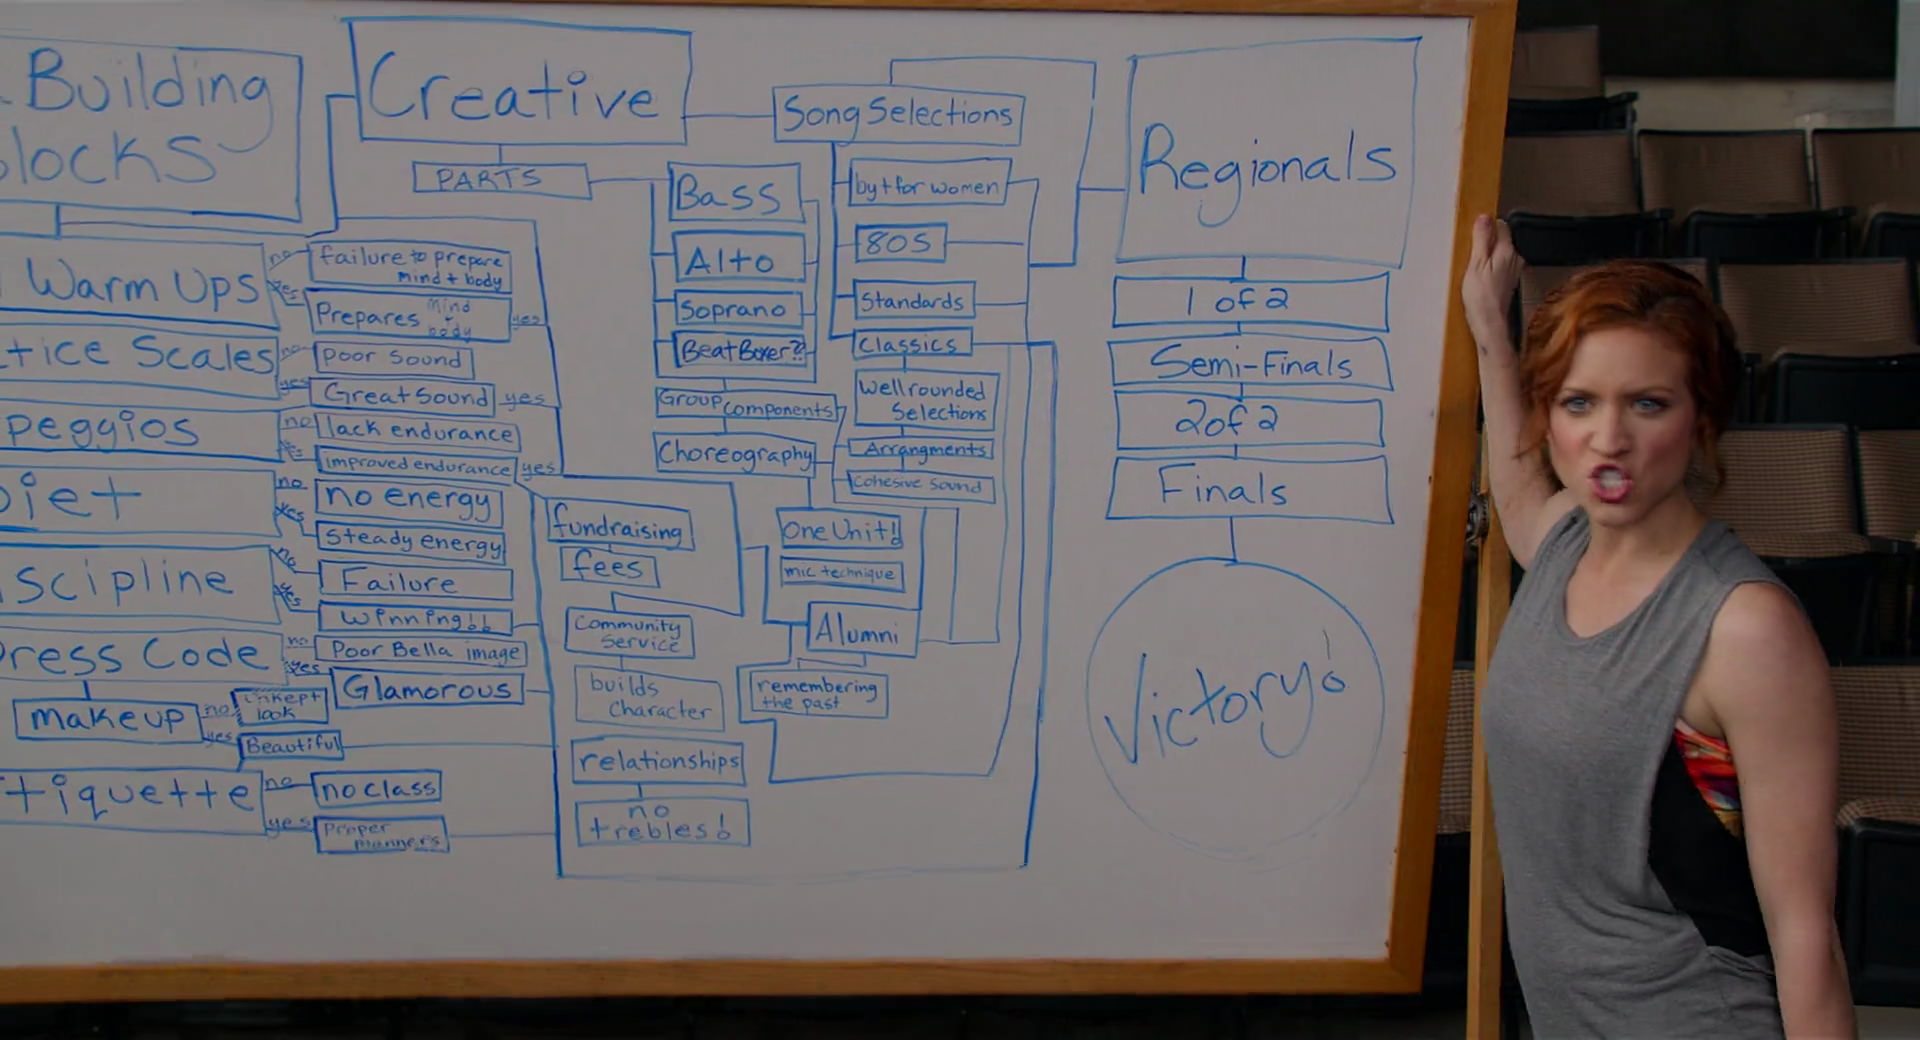 Building
locks
Warm Ups
no
failure to prepare
mind + body
yes
Prepares mind
+ body
yes
tice Scales
no
poor sound
yes
Great Sound
yes
peggios
no
lack endurance
yes
improved endurance
yes
iet
no
no energy
yes
steady energy
scipline
no
Failure
yes
winning!!
ress Code
no
Poor Bella image
yes
Glamorous
makeup
no
unkept
look
yes
Beautiful
tiquette
no
no class
yes
Proper
manners
Creative
PARTS
Bass
Alto
Soprano
BeatBoxer??
Group components
Choreography
One Unit!
mic technique
Alumni
remembering
the past
fundraising
fees
Community
Service
builds
Character
relationships
no
trebles!
Song Selections
by + for women
80s
Standards
Classics
well rounded
Selections
Arrangments
cohesive sound
Regionals
1 of 2
Semi-Finals
2 of 2
Finals
Victory!